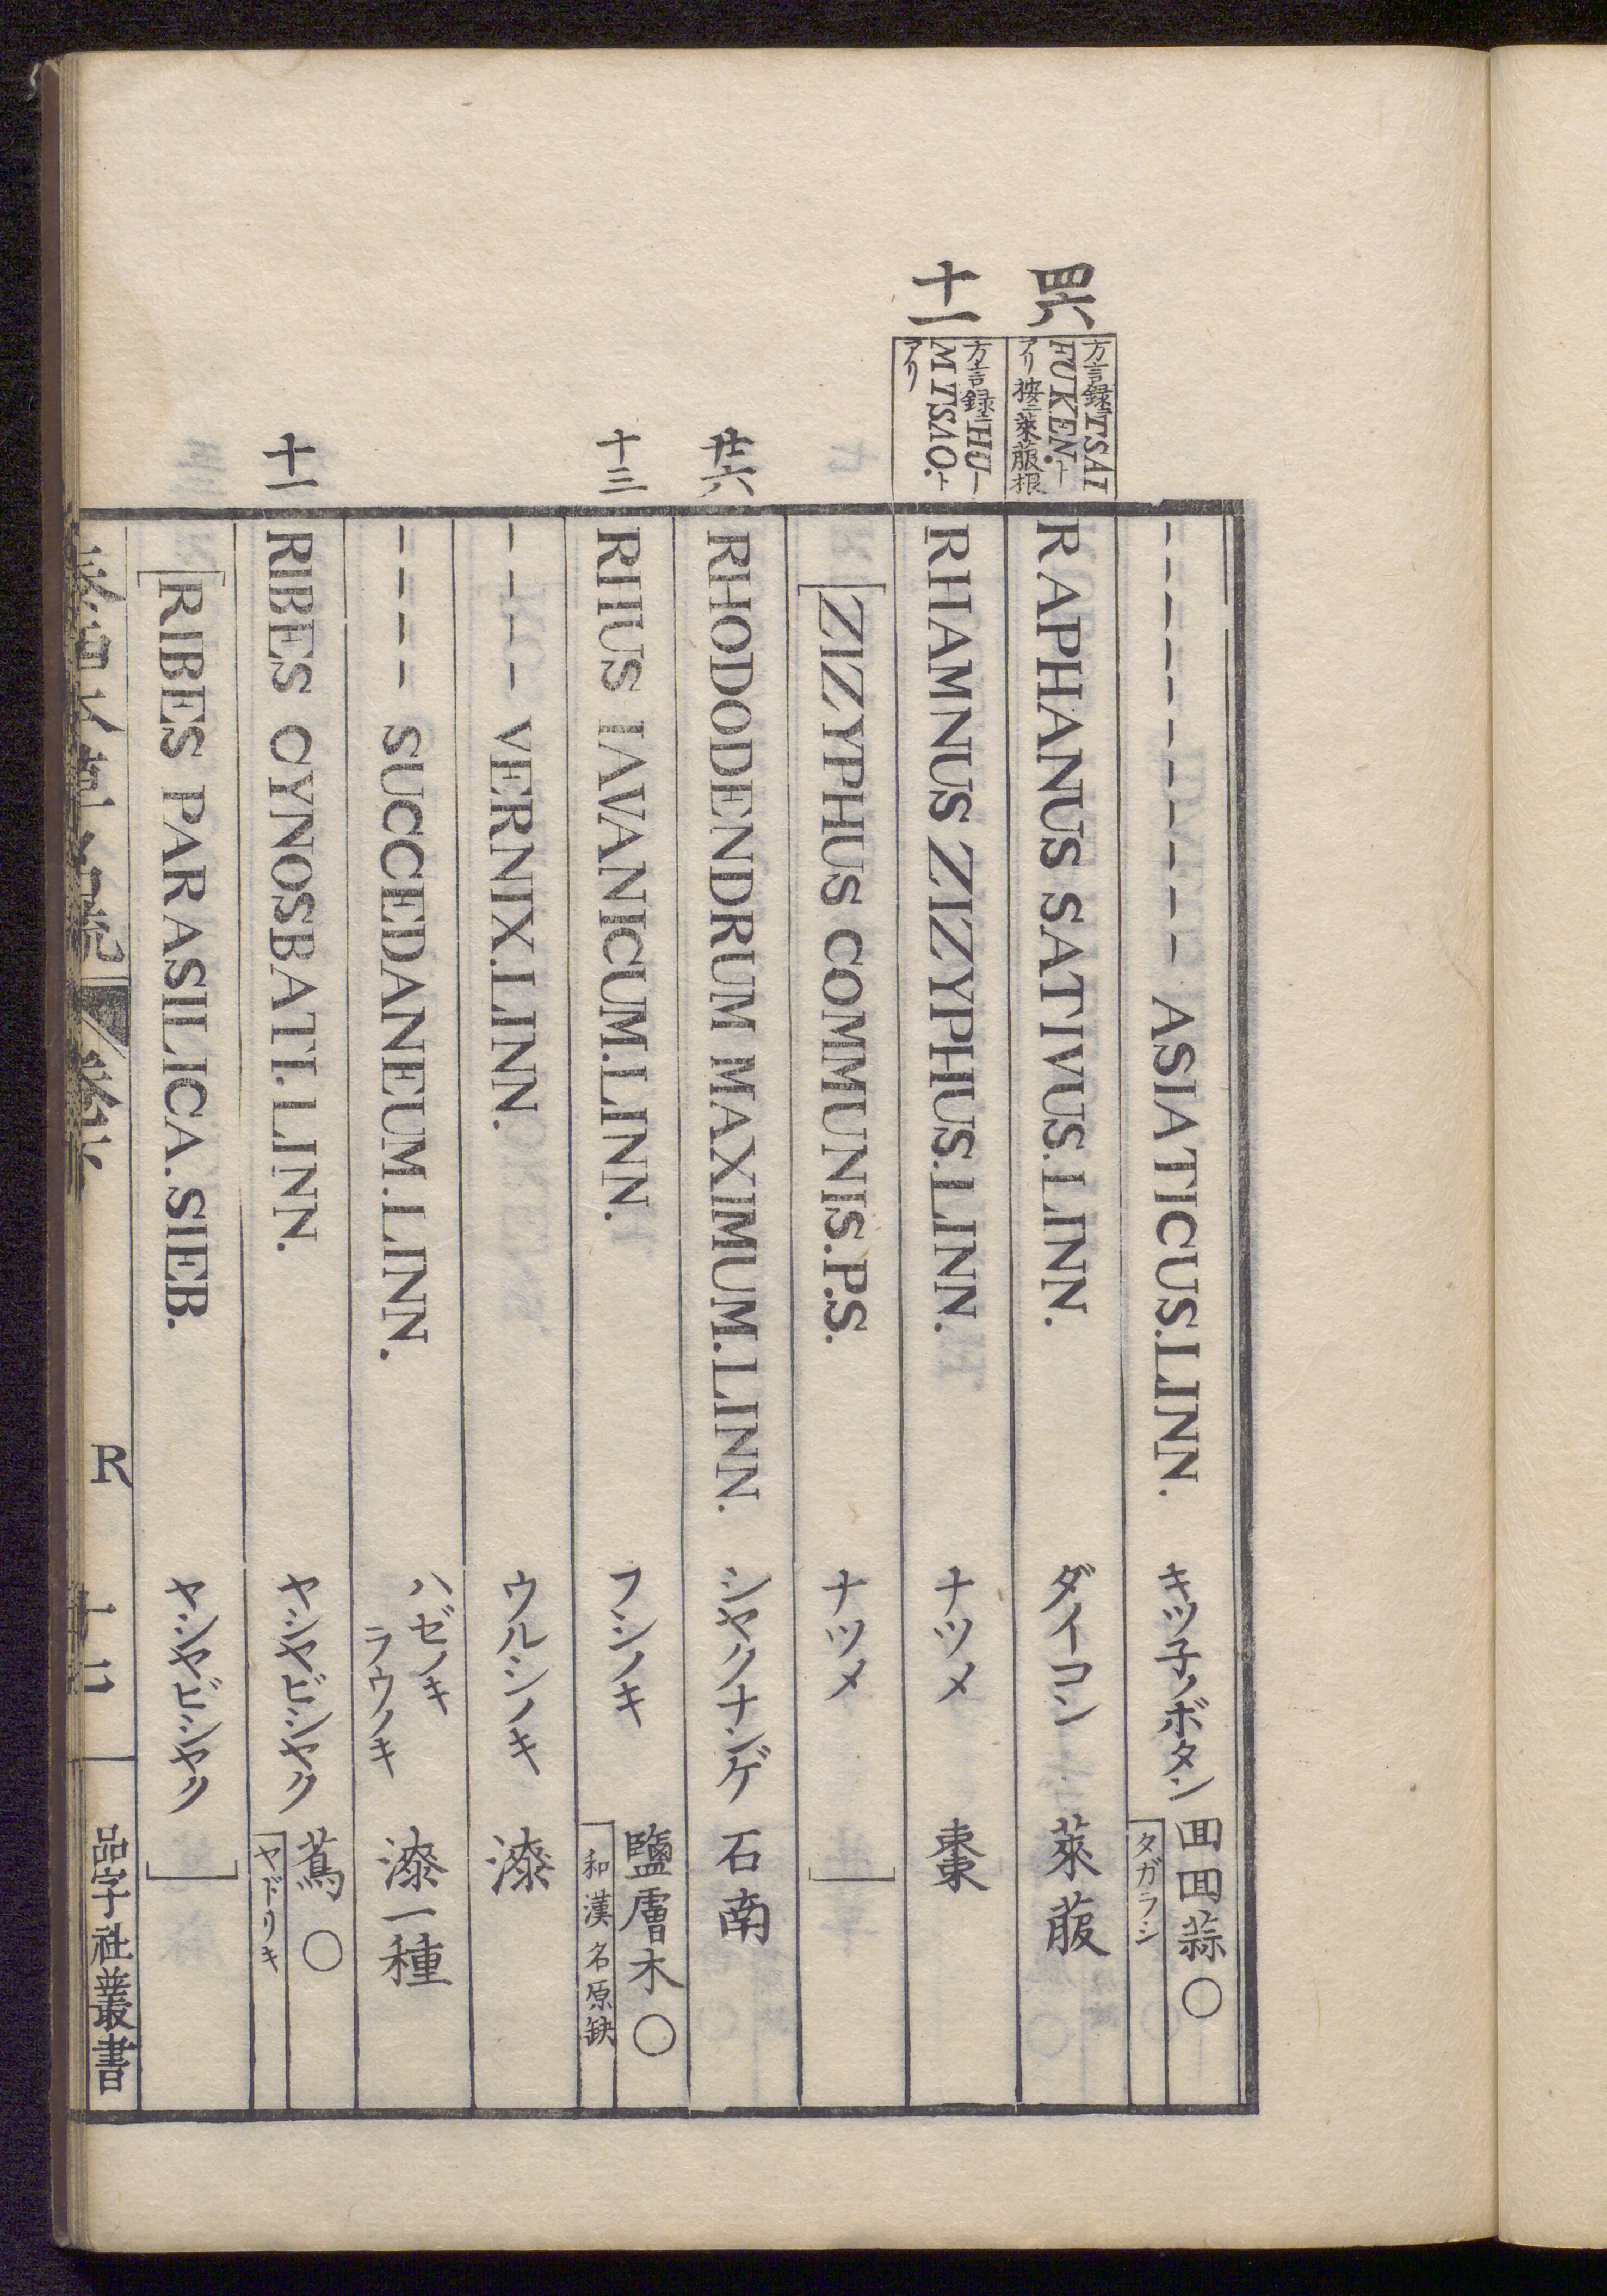 ---------- ASIATICUS.LINN. キツ子ノボタン 回回蒜〇
タガラシ
四六
方言録ニTSAI
FUKEN.ト
アリ按ニ萊菔根
RAPHANUS SATIVUS.LINN. ダイコン 萊菔
十一
方言録ニHU
MTSAO.ト
アリ
RHAMNUS ZIZYPHUS.LINN. ナツメ 棗
[ZIZYPHUS COMMUNIS.P.S. ナツメ ]
廿六 RHODODENDRUM MAXIMUM.LINN. シヤクナンゲ 石南
十三 RHUS IAVANICUM.LINN. フシノキ 鹽膚木〇
和漢名原缺
---- VERNIX.LINN. ウルシノキ 漆
---- SUCCEDANEUM.LINN. ハゼノキ
ラウノキ 漆一種
十一 RIBES CYNOSBATI.LINN. ヤシヤビシヤク 蔦〇
ヤドリキ
[RIBES PARASILICA.SIEB. ヤシヤビシヤク ]
R
品字社叢書